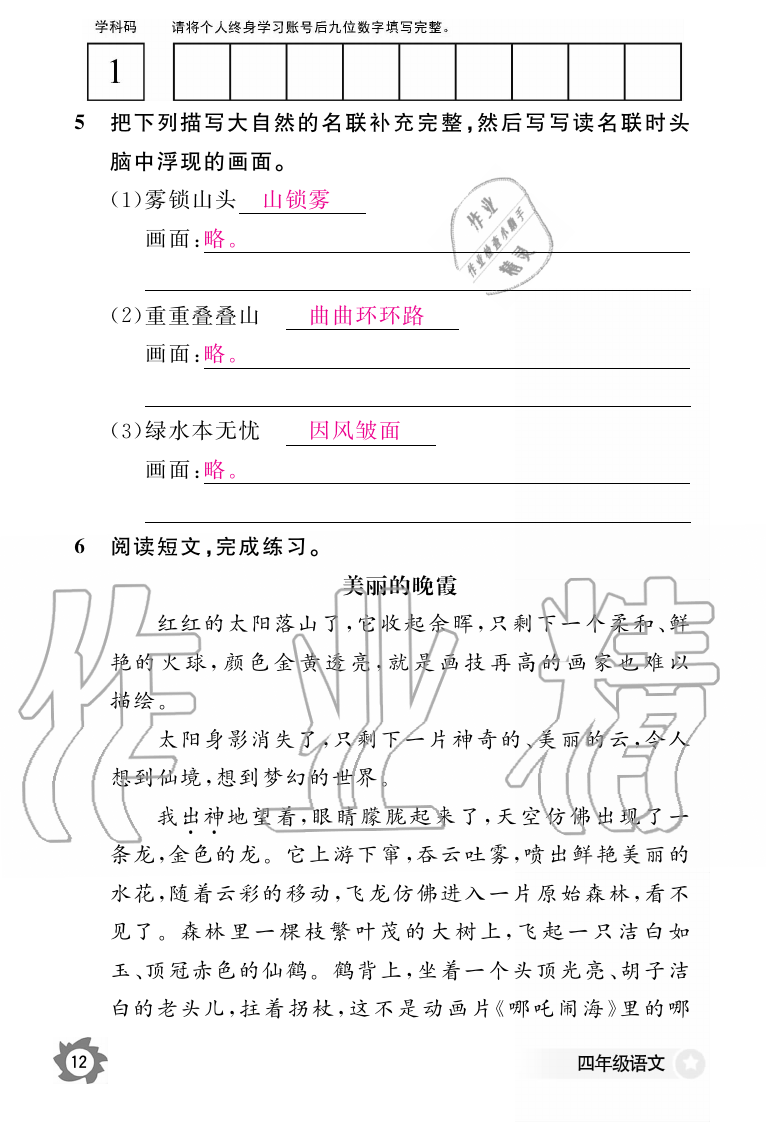 学科码 请将个人终身学习账号后九位数字填写完整。
1
5 把下列描写大自然的名联补充完整,然后写写读名联时头
脑中浮现的画面。
(1)雾锁山头 山锁雾
画面:略。
(2)重重叠叠山 曲曲环环路
画面:略。
(3)绿水本无忧 因风皱面
画面:略。
6 阅读短文,完成练习。
美丽的晚霞
红红的太阳落山了,它收起余晖,只剩下一个柔和、鲜
艳的火球,颜色金黄透亮,就是画技再高的画家也难以
描绘。
太阳身影消失了,只剩下一片神奇的、美丽的云,令人
想到仙境,想到梦幻的世界。
我出神地望着,眼睛朦胧起来了,天空仿佛出现了一
条龙,金色的龙。它上游下窜,吞云吐雾,喷出鲜艳美丽的
水花,随着云彩的移动,飞龙仿佛进入一片原始森林,看不
见了。森林里一棵枝繁叶茂的大树上,飞起一只洁白如
玉、顶冠赤色的仙鹤。鹤背上,坐着一个头顶光亮、胡子洁
白的老头儿,拄着拐杖,这不是动画片《哪吒闹海》里的哪
12
四年级语文
作业
作业检查小助手
精灵
作业精